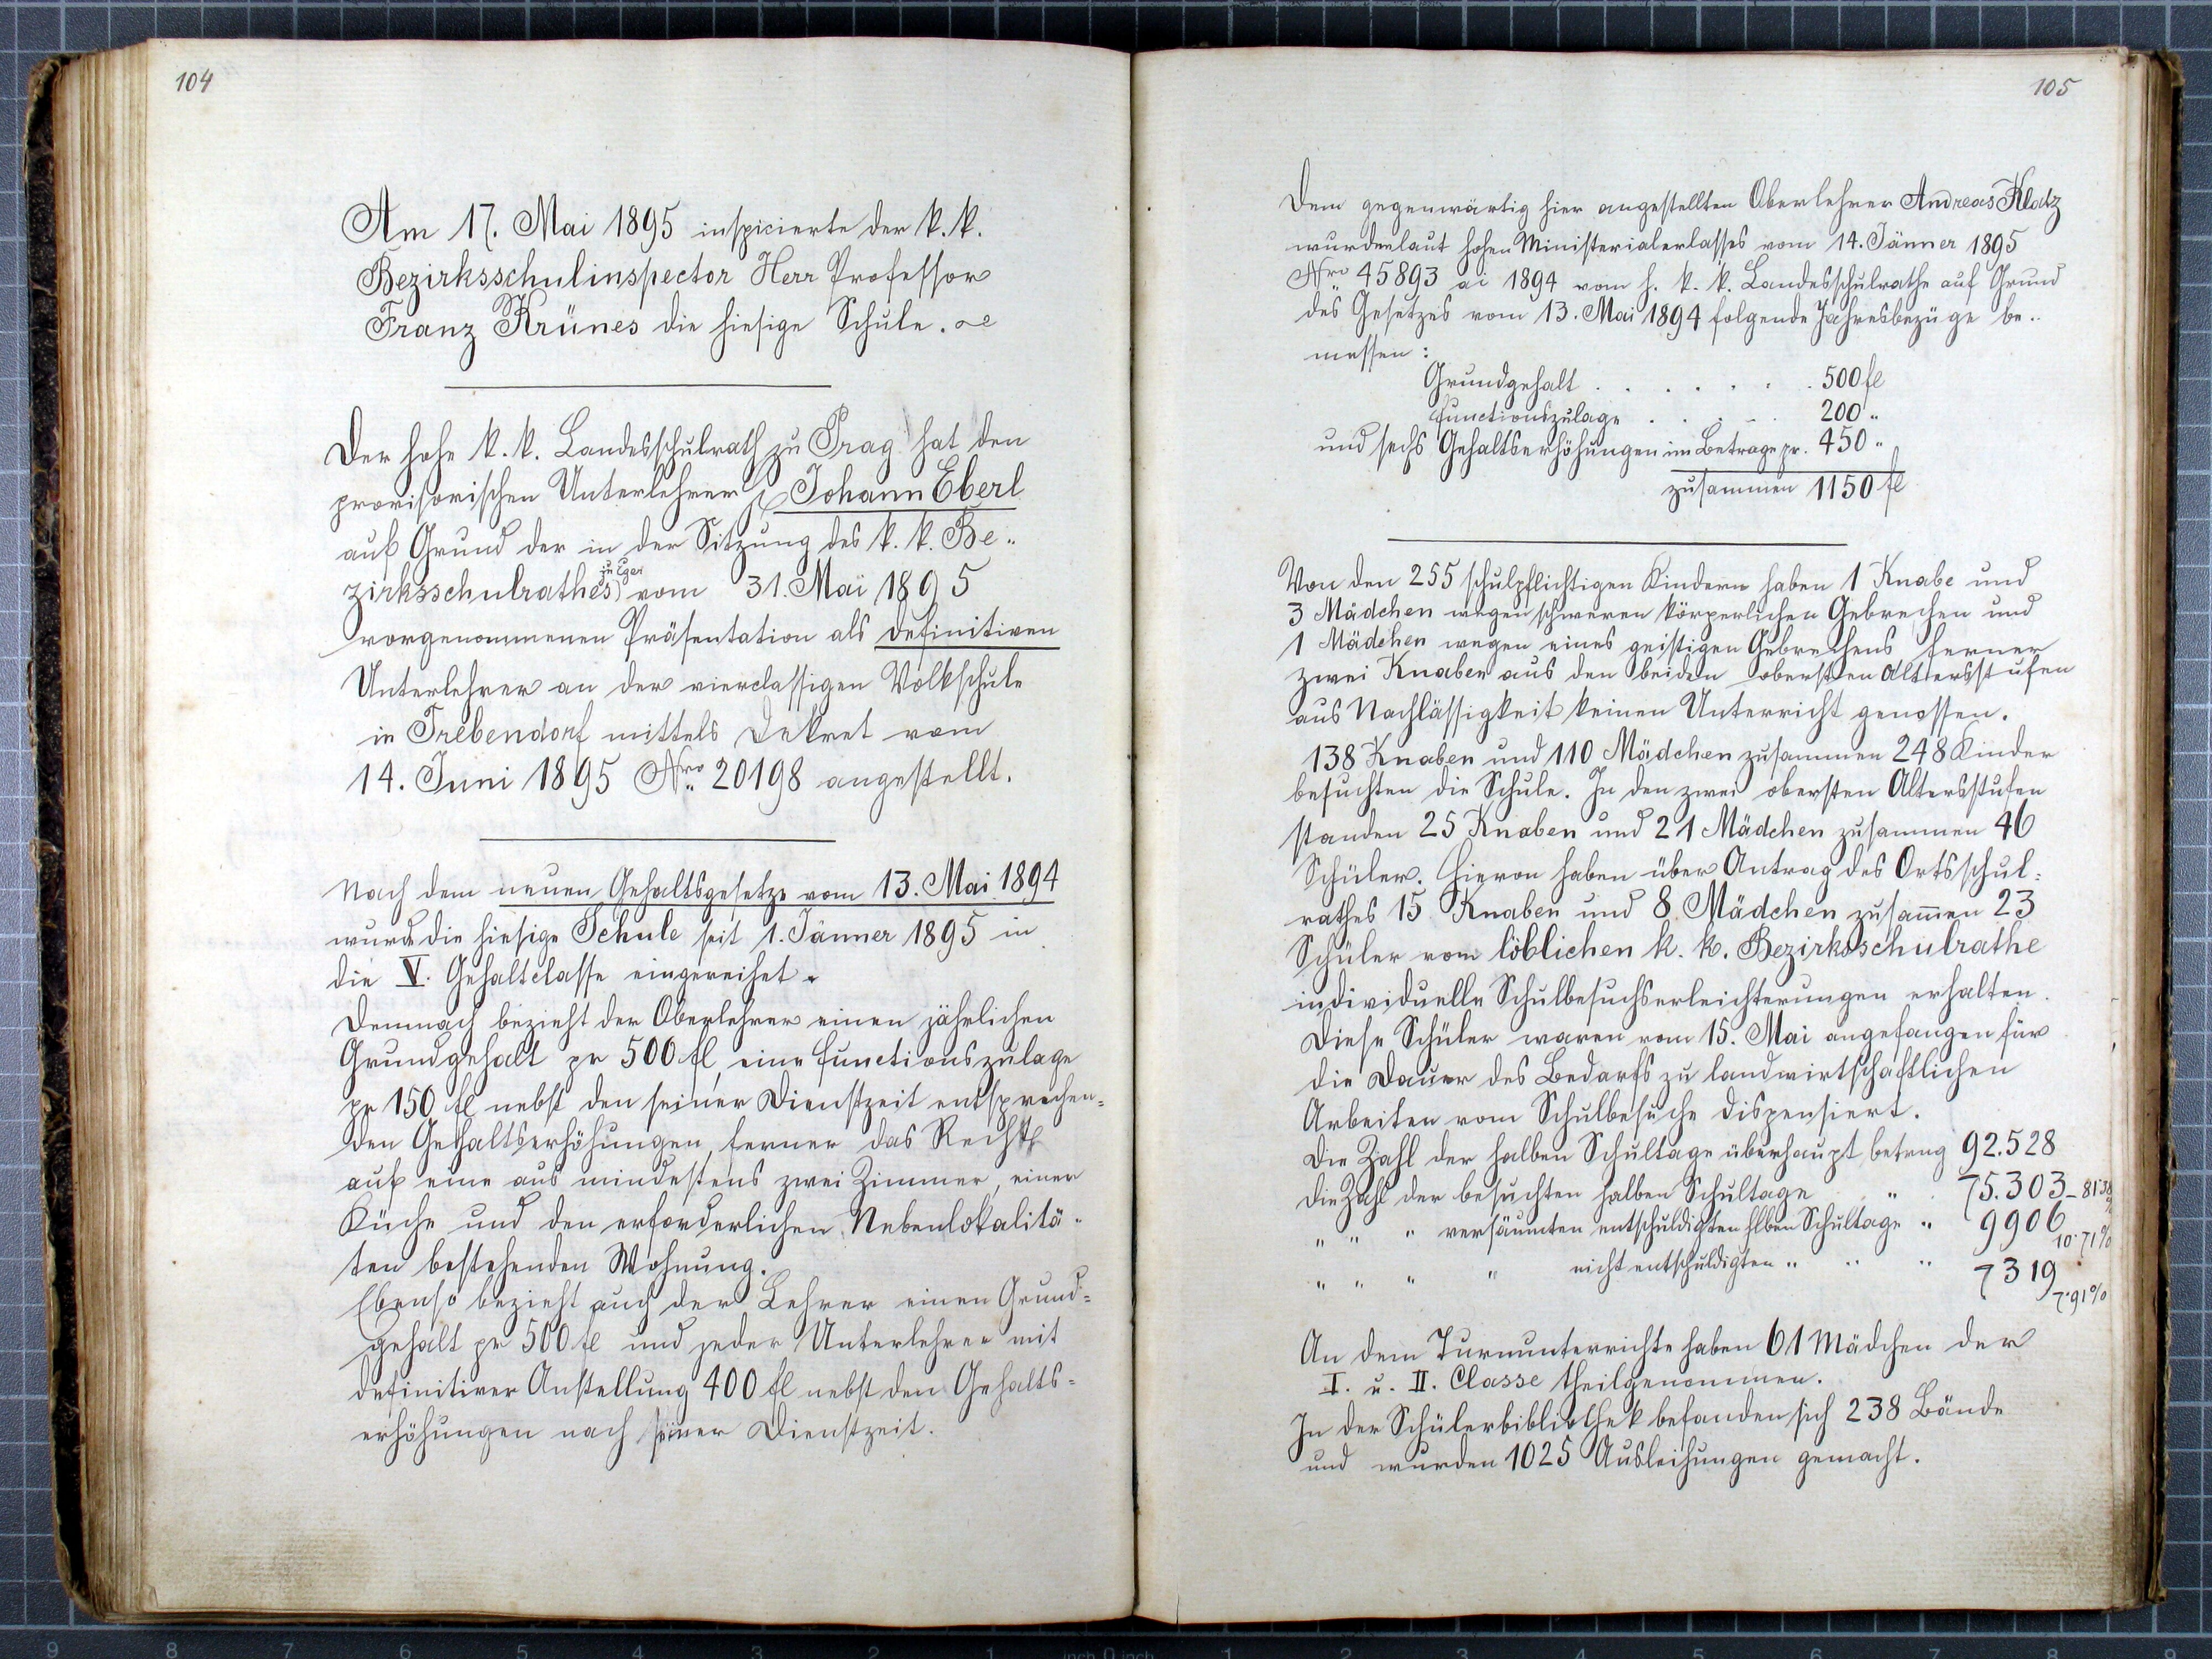 104
Am 17. Mai 1895 inspicierte der k. k.
Bezirksschulinspector Herr Professor
Franz Krünes die hiesige Schule.
Der hohe k. k. Landesschulrath zu Prag hat den
provisorischen Unterlehrer Johann Eberl
auf Grund der in der Sitzung des k. k. Be..
zirksschulrathes zu Eger vom 31. Mai 1895
vorgenommenen Präsentation als definitiven
Unterlehrer an der vierclassigen Volkschule
in Trebendorf mittels Dekret vom
14. Juni 1895 Nro 20198 angestellt.
Nach dem neuen Gehaltsgesetze vom 13. Mai 1894
wurde die hiesige Schule seit 1. Jänner 1895 in
die V. Gehaltclasse eingereihet.
Demnach bezieht der Oberlehrer einen jährlichen
Grundgehalt pr 500 fl, eine Functionszulage
pr 150 fl nebst den seiner Dienstzeit entsprechen=
den Gehaltserhöhungen, ferner das Recht
auf eine aus mindestens zwei Zimmer, einer
Küche und den erforderlichen Nebenlokalitä..
ten bestehenden Wohnung.
Ebenso bezieht auch der Lehrer einen Grund=
gehalt pr 500 fl und jeder Unterlehrer mit
definitiver Anstellung 400 fl nebst den Gehalts=
erhöhungen nach seiner Dienstzeit.
105
Dem gegenwärtig hier angestellten Oberlehrer Andreas Klotz
wurden laut hohen Ministerialerlasses vom 14. Jänner 1895
Nro 45893 ai 1894 vom h. k. k. Landesschulrathe auf Grund
des Gesetzes vom 13. Mai 1894 folgende Jahresbezüge be..
messen:
Grundgehalt . . . . . . . 500 fl
Functionszulage . . . . . 200 "
und sechs Gehaltserhöhungen im Betrage pr. 450 "
zusammen 1150 fl
Von den 255 schulpflichtigen Kindern haben 1 Knabe und
3 Mädchen wegen schweren körperlichen Gebrechen und
1 Mädchen wegen eines geistigen Gebrechens ferner
zwei Knaben aus den beiden obersten Altersstufen
aus Nachlässigkeit keinen Unterricht genossen.
138 Knaben und 110 Mädchen zusammen 248 Kinder
besuchten die Schule. In den zwei obersten Altersstufen
standen 25 Knaben und 21 Mädchen zusammen 46
Schüler. Hievon haben über Antrag des Ortsschul=
rathes 15 Knaben und 8 Mädchen zusam̄en 23
Schüler vom löblichen k. k. Bezirksschulrathe
individuelle Schulbesuchserleichterungen erhalten.
Diese Schüler waren vom 15. Mai angefangen für
die Dauer des Bedarfs zu landwirtschaftlichen
Arbeiten vom Schulbesuche dispensiert.
Die Zahl der halben Schultage überhaupt betrug 92.528
Die Zahl der besuchten halben Schultage " 75.303 - 81·38 %
" " " versäumten entschuldigten hlben Schultage " 9906 10·71%
" " " " nicht entschuldigten " " " 7319 7·91%
An dem Turnunterrichte haben 61 Mädchen der
I. u. II. Classe theilgenommen.
In der Schülerbibliothek befanden sich 238 Bände
und wurden 1025 Ausleihungen gemacht.
9 8 7 6 5 4 3 2 1 inch 0 inch 1 2 3 4 5 6 7 8 9